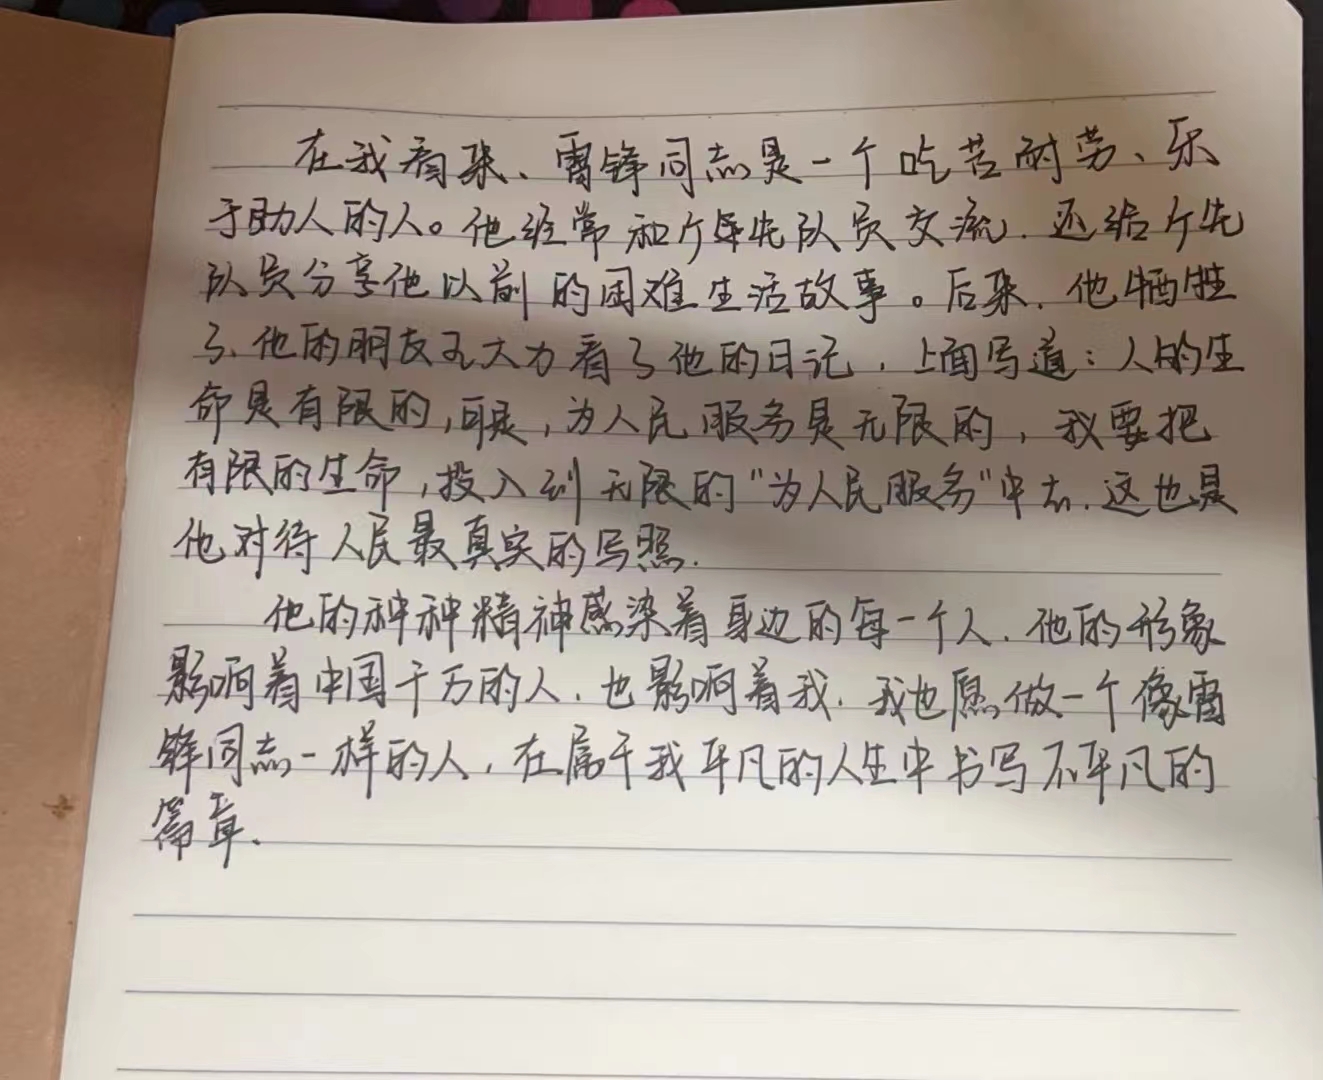 在我看来、雷锋同志是一个吃苦耐劳、乐
于助人的人。他经常和少年先队员交流.还给少先
队员分享他以前的困难生活故事。后来.他牺牲
了、他的朋友孔大力看了他的日记,上面写道:人的生
命是有限的,可是,为人民服务是无限的,我要把
有限的生命,投入到无限的“为人民服务”中去.这也是
他对待人民最真实的写照.
他的种种精神感染着身边的每一个人.他的形象
影响着中国千万的人.也影响着我.我也愿做一个像雷
锋同志一样的人,在属于我平凡的人生中书写不平凡的
篇章.